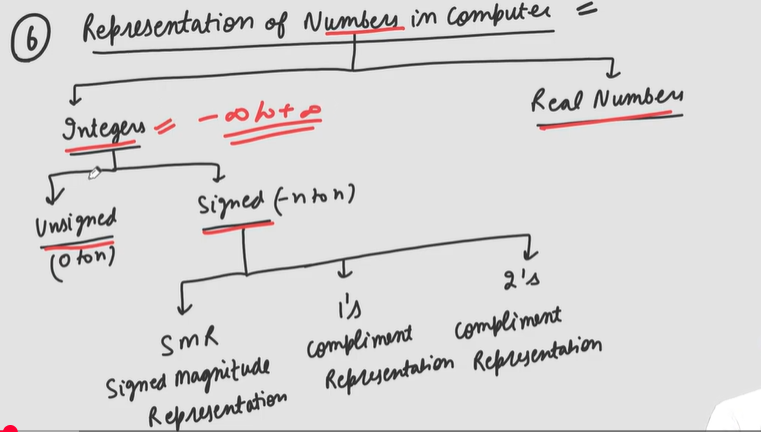 6 Representation of Numbers in Computer =
Integers = -∞ to +∞
Real Numbers
Unsigned
(0 to n)
Signed (-n to n)
SMR
Signed Magnitude
Representation
1's
Compliment
Representation
2's
Compliment
Representation